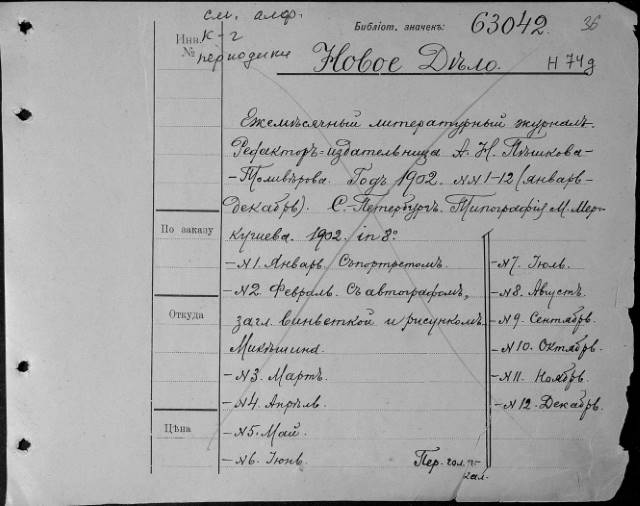 см. алф.
к-г
периодики
Инв.
№
Библіот. значекъ:
63042
36
Новое Дѣло.
Н 74д
Ежемѣсячный литературный журналъ.
Редакторъ-издательница А. Н. Пѣшкова-
-Толивѣрова. Годъ 1902. №№ 1-12 (январь-
декабрь). С.-Петербургъ. Типографія М. Мер-
кушева. 1902. in 8°
По заказу
Откуда
Цѣна
-№1. Январь. Съ портретомъ.
-№2. Февраль. Съ автографомъ,
загл. виньеткой и рисункомъ
Микѣшина.
-№3. Мартъ.
-№4. Апрѣль.
-№5. Май.
-№6. Іюнь.
-№7. Іюль.
-№8. Августъ.
-№9. Сентябрь.
-№10. Октябрь.
-№11. Ноябрь.
-№12. Декабрь.
Пер.